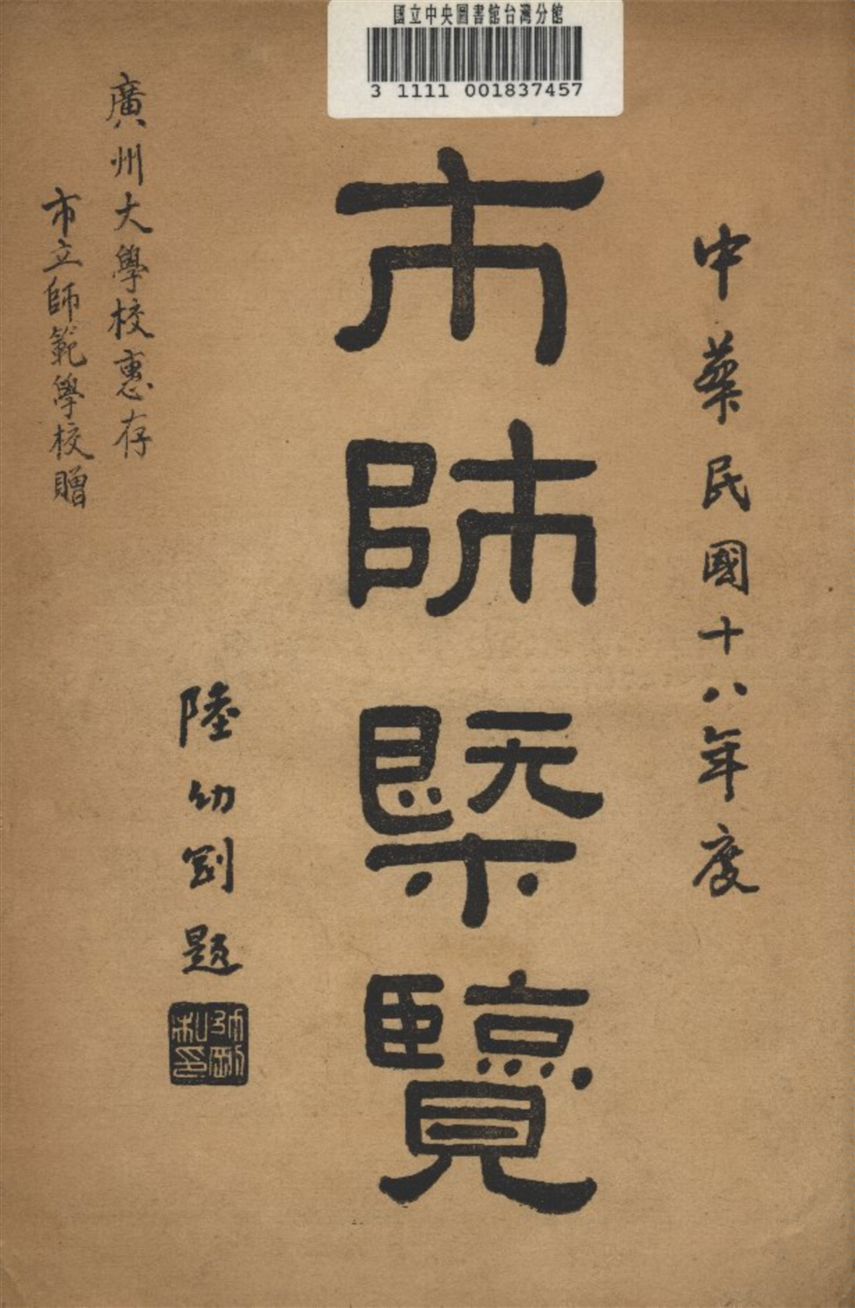 國立中央圖書館台灣分館
3 1111 001837457
中華民國十八年度
市師槩覽
陸幼剛題
幼剛私印
廣州大學校惠存
市立師範學校贈